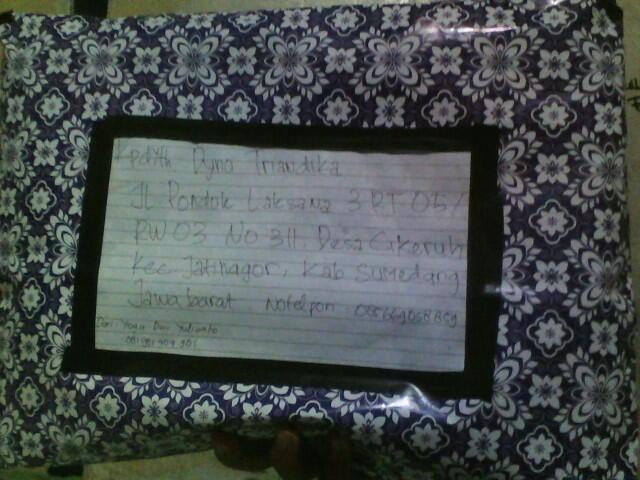 Kpd Yth Dyno Triandika
Jl. Pondok Laksana 3 RT 05/
RW 03 No 311. Desa Cikeruh
Kec. Jatinagor, Kab Sumedang
Jawa barat No telpon
Dari: Yoga Dwi Yulianto